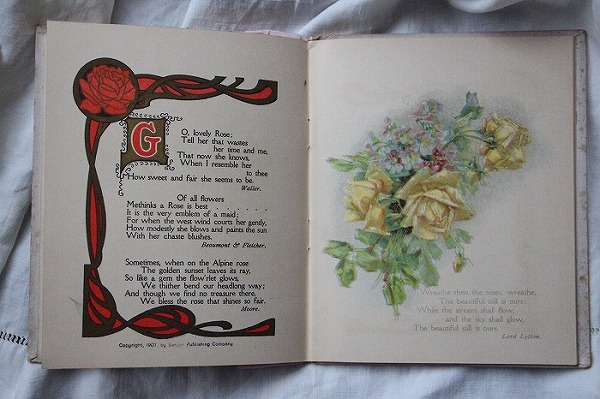 GO, lovely Rose;
Tell her that wastes
her time and me,
That now she knows,
When I resemble her
to thee
How sweet and fair she seems to be.
Waller.
Of all flowers
Methinks a Rose is best . . . . . .
It is the very emblem of a maid;
For when the west wind courts her gently,
How modestly she blows and paints the sun
With her chaste blushes.
Beaumont & Fletcher.
Sometimes, when on the Alpine rose
The golden sunset leaves its ray,
So like a gem the flow'ret glows,
We thither bend our headlong way;
And though we find no treasure there,
We bless the rose that shines so fair.
Moore.
Copyright, 1907, by Publishing Company
Wreathe then the roses, wreathe,
The beautiful still is ours;
While the stream shall flow,
and the sky shall glow,
The beautiful still is ours.
Lord Lytton.